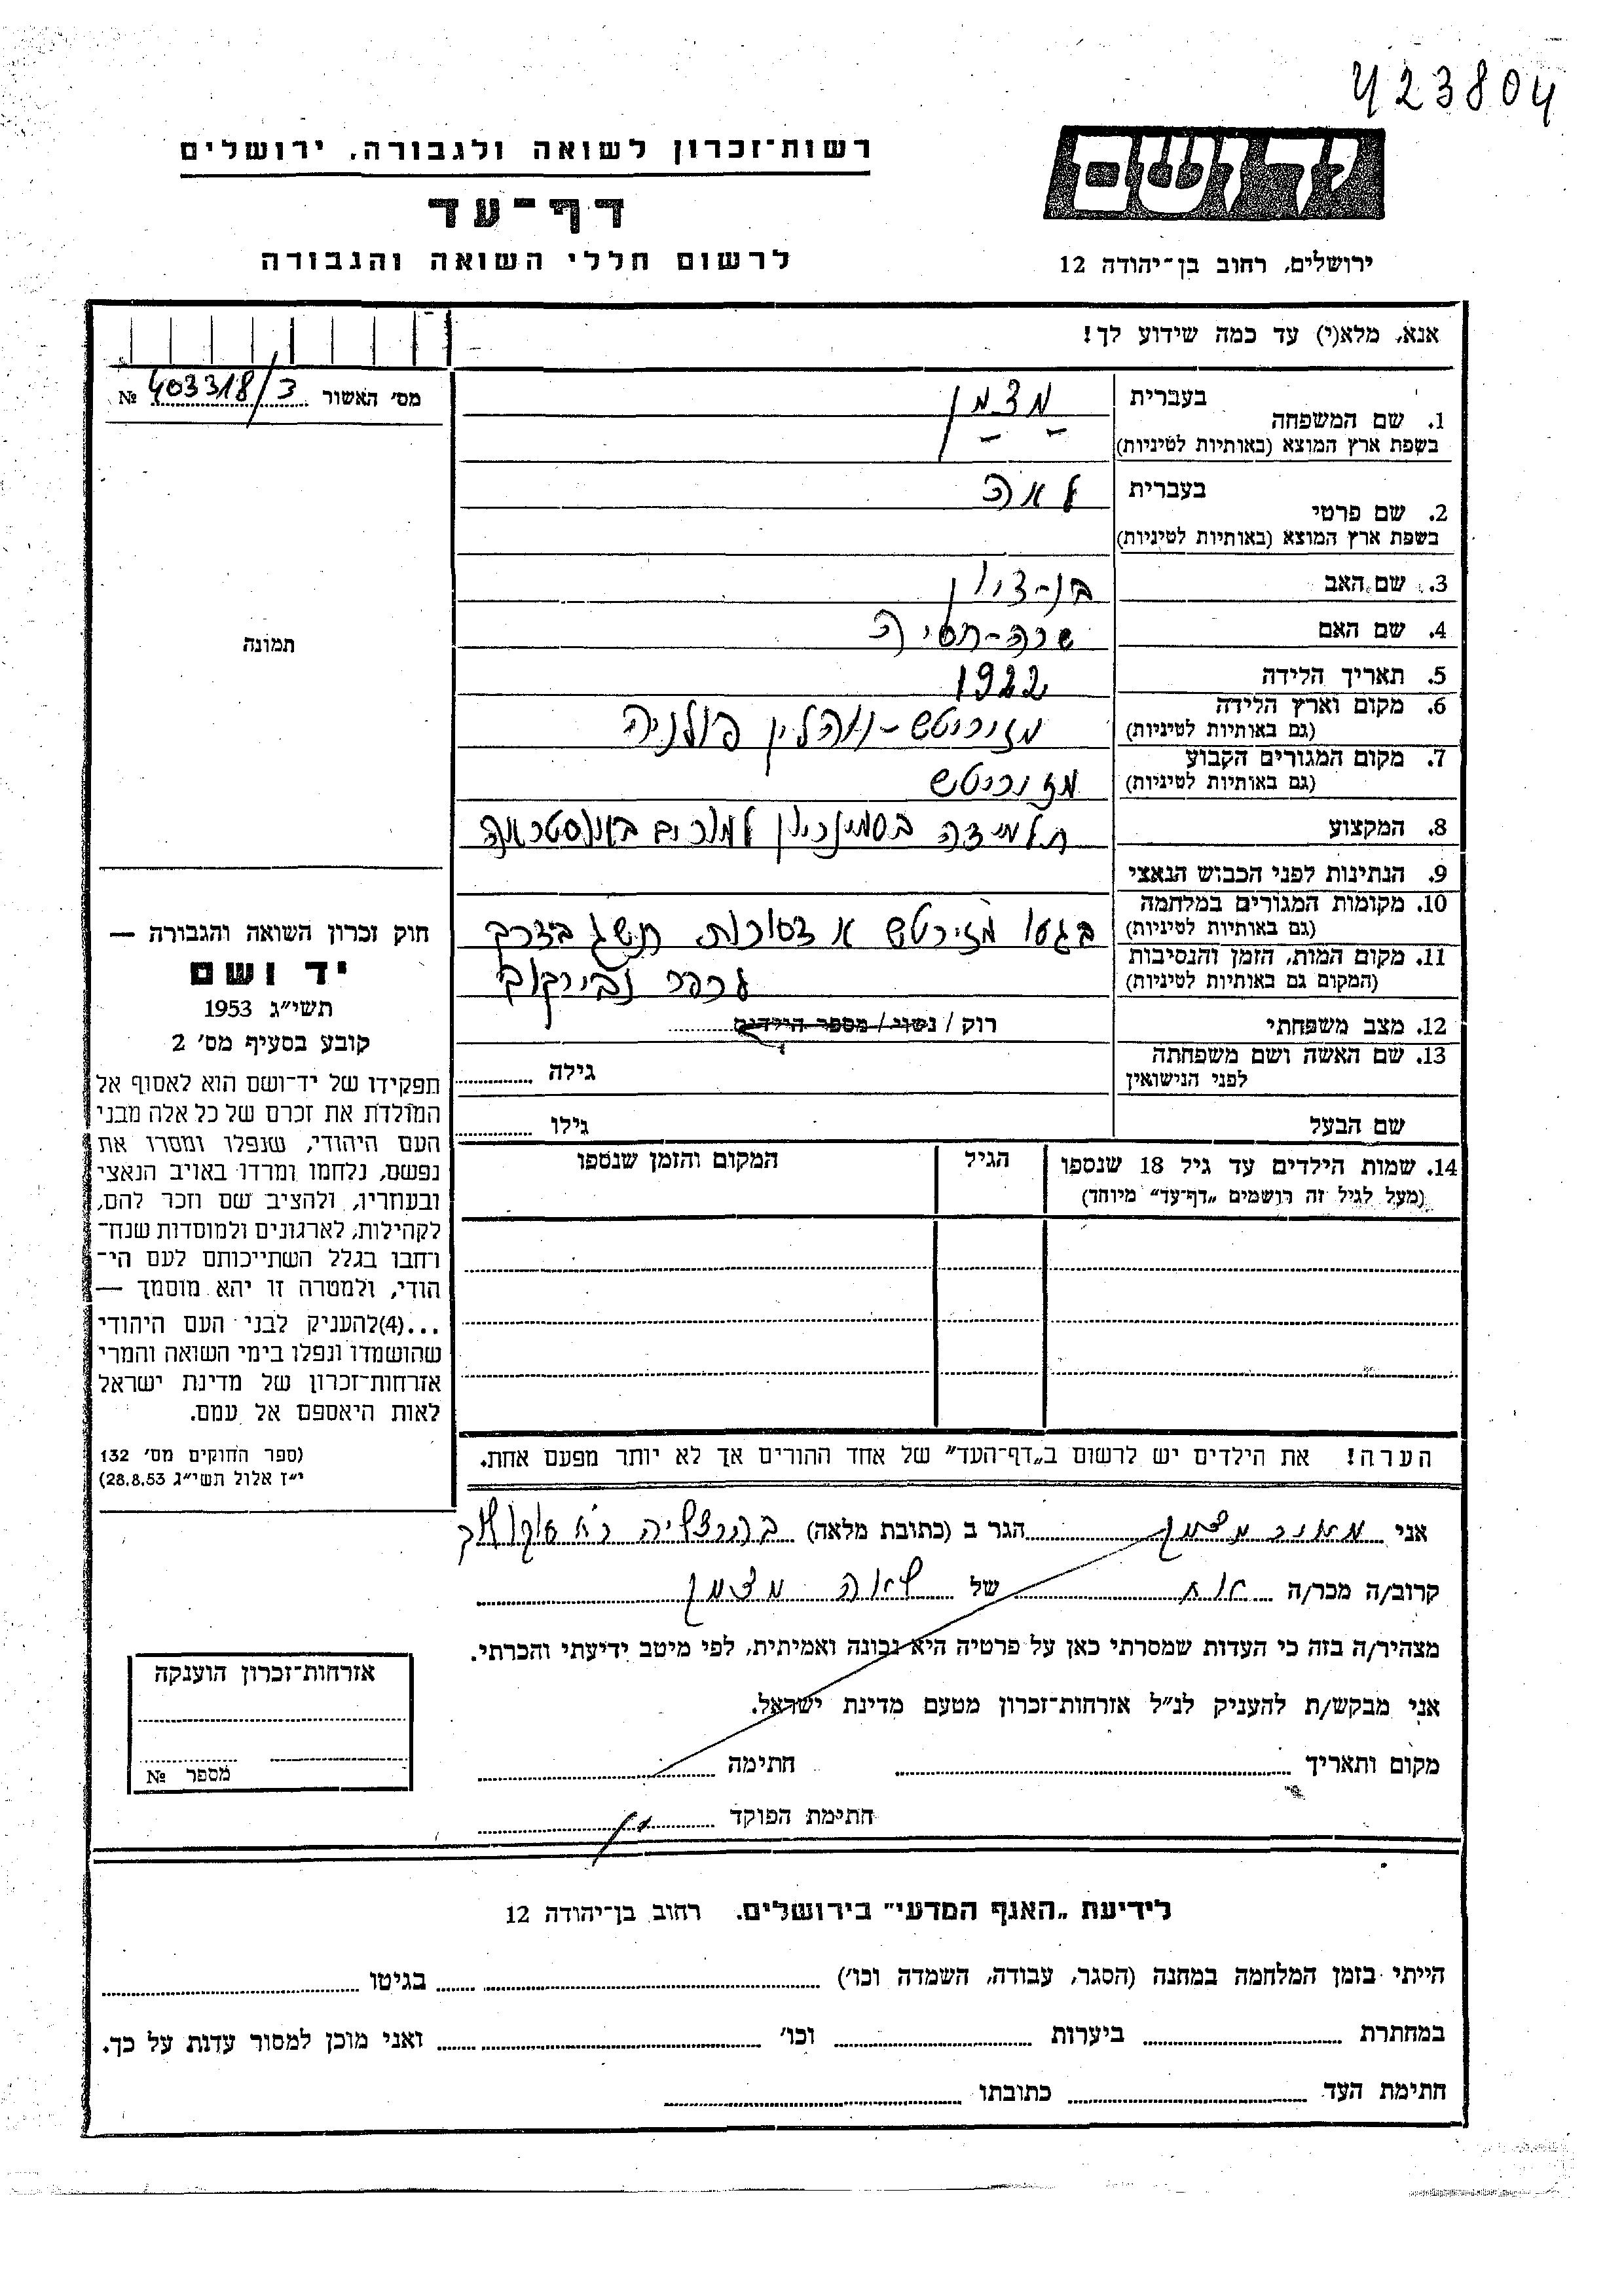 423804
רשות־זכרון לשואה ולגבורה, ירושלים
דף־עד
לרשום חללי השואה והגבורה
יד ושם
ירושלים, רחוב בן־יהודה 12
אנא, מלא(י) עד כמה שידוע לך!
מס׳ האשור 403318/3 №
תמונה
1. שם המשפחה בעברית מצמן
בשפת ארץ המוצא (באותיות לטיניות)
2. שם פרטי בעברית לאה
בשפת ארץ המוצא (באותיות לטיניות)
3. שם האב בן-ציון
4. שם האם שרה-חסיה
5. תאריך הלידה 1922
6. מקום וארץ הלידה מזוריטש-ווהלין פולניה
(גם באותיות לטיניות)
7. מקום המגורים הקבוע מזוריטש
(גם באותיות לטיניות)
8. המקצוע תלמידה בסמינריון למורים
9. הנתינות לפני הכבוש הנאצי
10. מקומות המגורים במלחמה
(גם באותיות לטיניות)
בגטו מזיריטש א דסוכות תשג בדרך
11. מקום המות, הזמן והנסיבות
(המקום גם באותיות לטיניות)
לכפר
12. מצב משפחתי רוק / נשוי / מספר הילדים
13. שם האשה ושם משפחתה
לפני הנישואין גילה
שם הבעל גילו
14. שמות הילדים עד גיל 18 שנספו הגיל המקום והזמן שנספו
(מעל לגיל זה רושמים „דף־עד״ מיוחד)
הערה! את הילדים יש לרשום ב„דף־העד״ של אחד ההורים אך לא יותר מפעם אחת.
חוק זכרון השואה והגבורה —
יד ושם
תשי״ג 1953
קובע בסעיף מס׳ 2
תפקידו של יד־ושם הוא לאסוף אל
המולדת את זכרם של כל אלה מבני
העם היהודי, שנפלו ומסרו את
נפשם, נלחמו ומרדו באויב הנאצי
ובעוזריו, ולהציב שם וזכר להם,
לקהילות, לארגונים ולמוסדות שנח־
רחבו בגלל השתייכותם לעם הי־
הודי, ולמטרה זו יהא מוסמך —
...(4)להעניק לבני העם היהודי
שהושמדו ונפלו בימי השואה והמרי
אזרחות־זכרון של מדינת ישראל
לאות היאספם אל עמם.
(ספר החוקים מס׳ 132
י״ז אלול תשי״ג 28.8.53)
אני מאיר מצמן הגר ב (כתובת מלאה) בהרצליה
קרוב/ה מכר/ה אח של לאה מצמן
מצהיר/ה בזה כי העדות שמסרתי כאן על פרטיה היא נכונה ואמיתית, לפי מיטב ידיעתי והכרתי.
אני מבקש/ת להעניק לנ״ל אזרחות־זכרון מטעם מדינת ישראל.
מקום ותאריך חתימה
חתימת הפוקד
אזרחות־זכרון הוענקה
מספר №
לידיעת „האגף המדעי״ בירושלים. רחוב בן־יהודה 12
הייתי בזמן המלחמה במחנה (הסגר, עבודה, השמדה וכו׳) בגיטו
במחתרת ביערות וכו׳ ואני מוכן למסור עדות על כך.
חתימת העד כתובתו